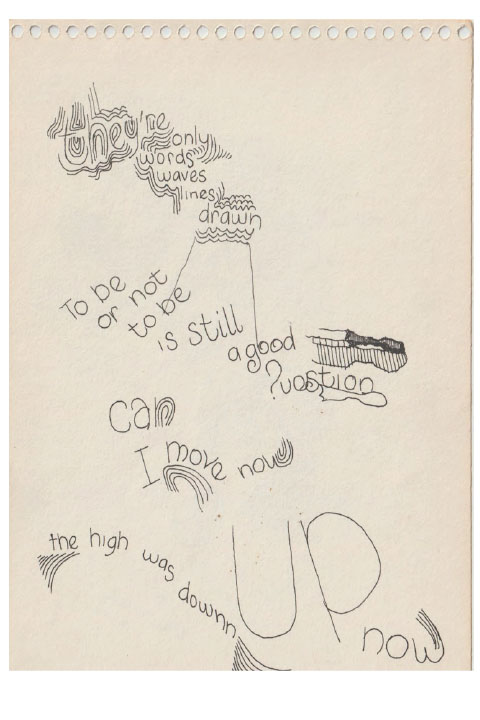 they're
only
words
waves
lines
drawn
To be
or not
to be
is still
a good
?uostion
can
I move now
the high was downn
UP
now